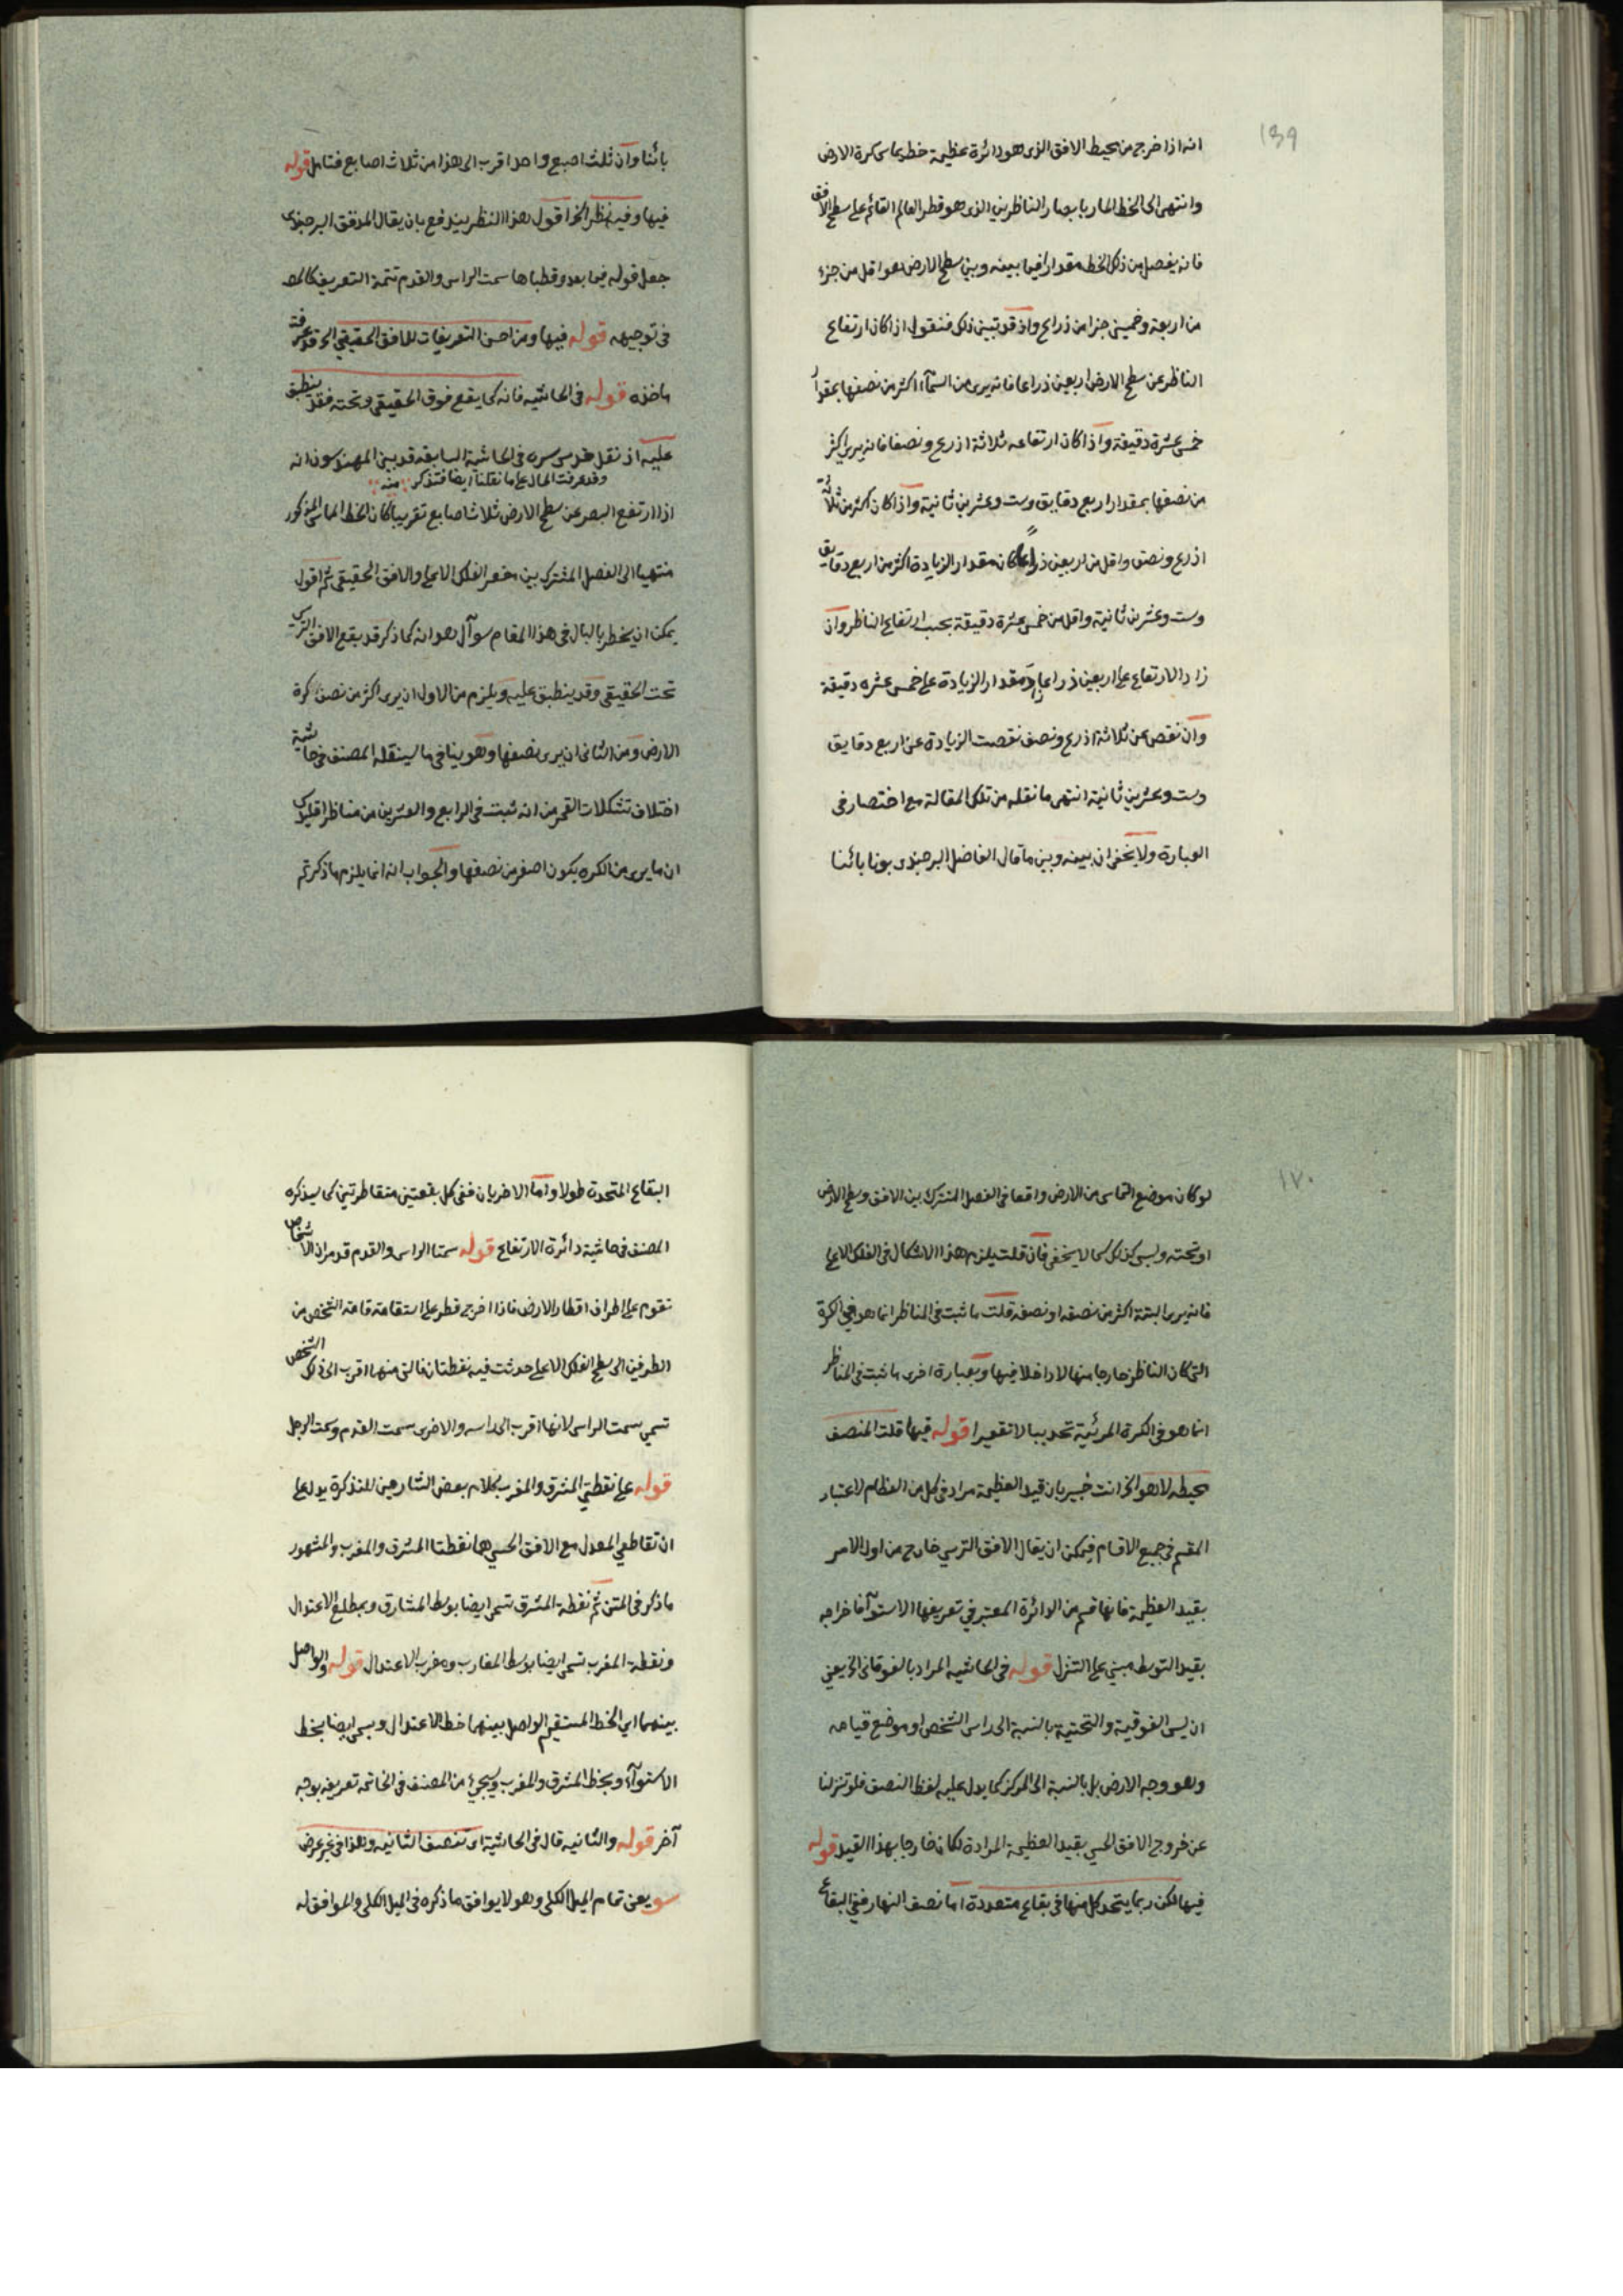 ١٦٩
انه اذا خرج من محيط الافق الذى هو دائرة عظيمة خط يماس كرة الارض
وانتهى الى الخط المار بابصار الناظرين الذى هو قطر العالم القائم على سطح الافق
فانه يفصل من ذلك الخط مقدارا فيما بينه وبين سطح الارض هو اقل من جزء
من اربعة وخمسين جزا من ذراع واذ قد تبين ذلك فنقول اذا كان ارتفاع
الناظر عن سطح الارض اربعين ذراعا فانه يرى من السمآء اكثر من نصفها بمقدار
خمس عشرة دقيقة واذا كان ارتفاعه ثلاثة اذرع ونصفا فانه يرى اكثر
من نصفها بمقدار اربع دقايق وست وعشرين ثانية واذا كان اكثر من ثلاثة
اذرع ونصف واقل من اربعين ذراعا كان مقدار الزيادة اكثر من اربع دقايق
وست وعشرين ثانية واقل من خمس عشرة دقيقة بحسب ارتفاع الناظر وان
زاد الارتفاع على اربعين ذراعا زاد مقدار الزيادة على خمس عشره دقيقة
وان نقص عن ثلاثة اذرع ونصف نقصت الزيادة عن اربع دقايق
وست وعشرين ثانية انتهى ما نقله من تلك المقالة مع اختصار فى
العبارة ولا يخفى ان بينه وبين ما قال الفاضل البرجندى بونا بائنا
بائنا وان ثلث اصبع واحد اقرب الى هذا من ثلاث اصابع فتامل قوله
فيها وفيه نظر الخ اقول هذا النظر يندفع بان يقال المدقق البرجندى
جعل قوله فيما بعد وقطباها سمت الراس والقدم تتمة التعريف كالمص
فى توجيهه قوله فيها ومن احسن التعريفات للافق الحقيقى الخ قد عرفت
ماخذه قوله فى الحاشيه فانه كما يقع فوق الحقيقى وتحته فقد ينطبق
عليه اذ نقل قدس سره فى الحاشية السابقه قد بين المهندسون انه
وقد عرفت الحال على ما نقلنا ايضا فتذكر منه
اذا ارتفع البصر عن سطح الارض ثلاث اصابع تقريبا كان الخط المماس المذكور
منتهيا الى الفصل المشترك بين مقعر الفلك الاعلى والافق الحقيقى ثم اقول
يمكن ان يخطر بالبال فى هذا المقام سوآل هو انه كما ذكر قد يقع الافق الترسى
تحت الحقيقى وقد ينطبق عليه ويلزم من الاول ان يرى اكثر من نصف كرة
الارض ومن الثانى ان يرى نصفها وهو ينافى ما سينقله المصنف فى حاشية
اختلاف تشكلات القمر من انه ثبت فى الرابع والعشرين من مناظر اقليدس
ان ما يرى من الكره يكون اصغر من نصفها والجواب انه انما يلزم ما ذكرتم
١٧٠
لو كان موضع التماس من الارض واقعا فى الفصل المشترك بين الافق وسطح الارض
او تحته وليس كذلك كما لا يخفى فان قلت يلزم هذا الاشكال فى الفلك الاعلى
فانه يرى البتة اكثر من نصفه او نصفه قلت ما ثبت فى المناظر انما هو فى الكرة
التى كان الناظر خارجا منها لا داخلا فيها وبعبارة اخرى ما ثبت فى المناظر
انما هو فى الكرة المرئية تحديبا لا تقعيرا قوله فيها قلت المنصف
محيطه لا هو الخ انت خبير بان قيد العظيمة مراد فى كل من العظام لاعتبار
المقسم فى جميع الاقسام فيمكن ان يقال الافق الترسي خارج من اول الامر
بقيد العظيمة فانها قسم من الدائرة المعتبر في تعريفها الاستوآ فاخراجه
بقيد التوسط مبني على التنزل قوله فى الحاشيه المراد بالفوقانى الخ يعني
ان ليس الفوقية والتحتية بالنسبة الى راس الشخص او موضع قيامه
وهو وجه الارض بل بالنسبة الى المركز كما يدل عليه لفظ النصف فلو تنزلنا
عن خروج الافق الحسي بقيد العظيمة المرادة لكان خارجا بهذا القيد قوله
فيها لكن ربما يتحد كل منها فى بقاع متعددة اما نصف النهار ففي البقاع
البقاع المتحدة طولا واما الاخريان ففى كل بقعتين متقاطرتين كما سيذكره
المصنف فى حاشية دائرة الارتفاع قوله سمتا الراس والقدم قد مر ان الاشخاص
تقوم على اطراف اقطار الارض فاذا اخرج قطر على استقامة قامة الشخص من
الطرفين الى سطح الفلك الاعلى حدثت فيه نقطتان فالتى منهما اقرب الى ذلك الشخص
تسمي سمت الراس لانها اقرب الى راسه والاخرى سمت القدم وسمت الرجل
قوله على نقطتي المشرق والمغرب كلام بعض الشارحين للتذكرة يدل على
ان تقاطعي المعدل مع الافق الحسي هما نقطتا المشرق والمغرب والمشهور
ما ذكر فى المتن ثم نقطة المشرق تسمى ايضا بوسط المشارق وبمطلع الاعتدال
ونقطة المغرب تسمى ايضا بوسط المغارب ومغرب الاعتدال قوله والواصل
بينهما اي الخط المستقيم الواصل بينهما خط الاعتدال ويسمى ايضا بخط
الاستوآء وبخط المشرق والمغرب وسيجئ من المصنف فى الخاتمه تعريفه بوجه
آخر قوله والثانيه قال فى الحاشية اى تنصف الثانيه وهذا فى غير عرض
سو يعنى تمام الميل الكلى وهو لا يوافق ما ذكره فى الميل الكلى والموافق له